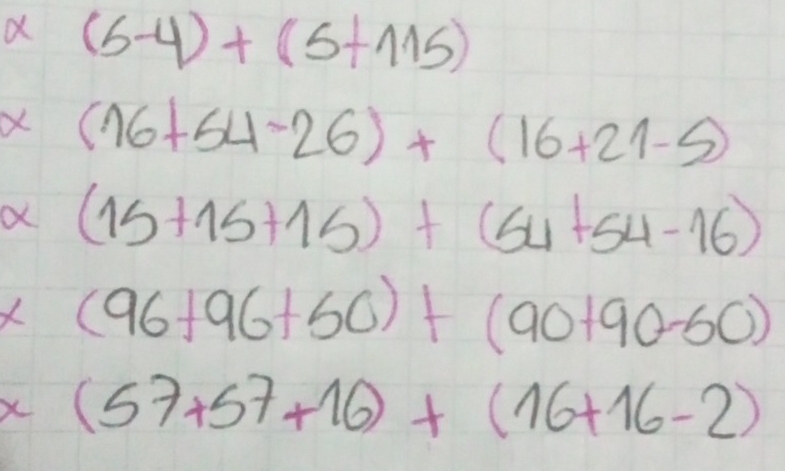 × (5-4) + (5+115)
× (16+54-26) + (16+21-5)
× (15+15+15) + (54+54-16)
× (96+96+50) + (90+90-50)
× (57+57+16) + (16+16-2)